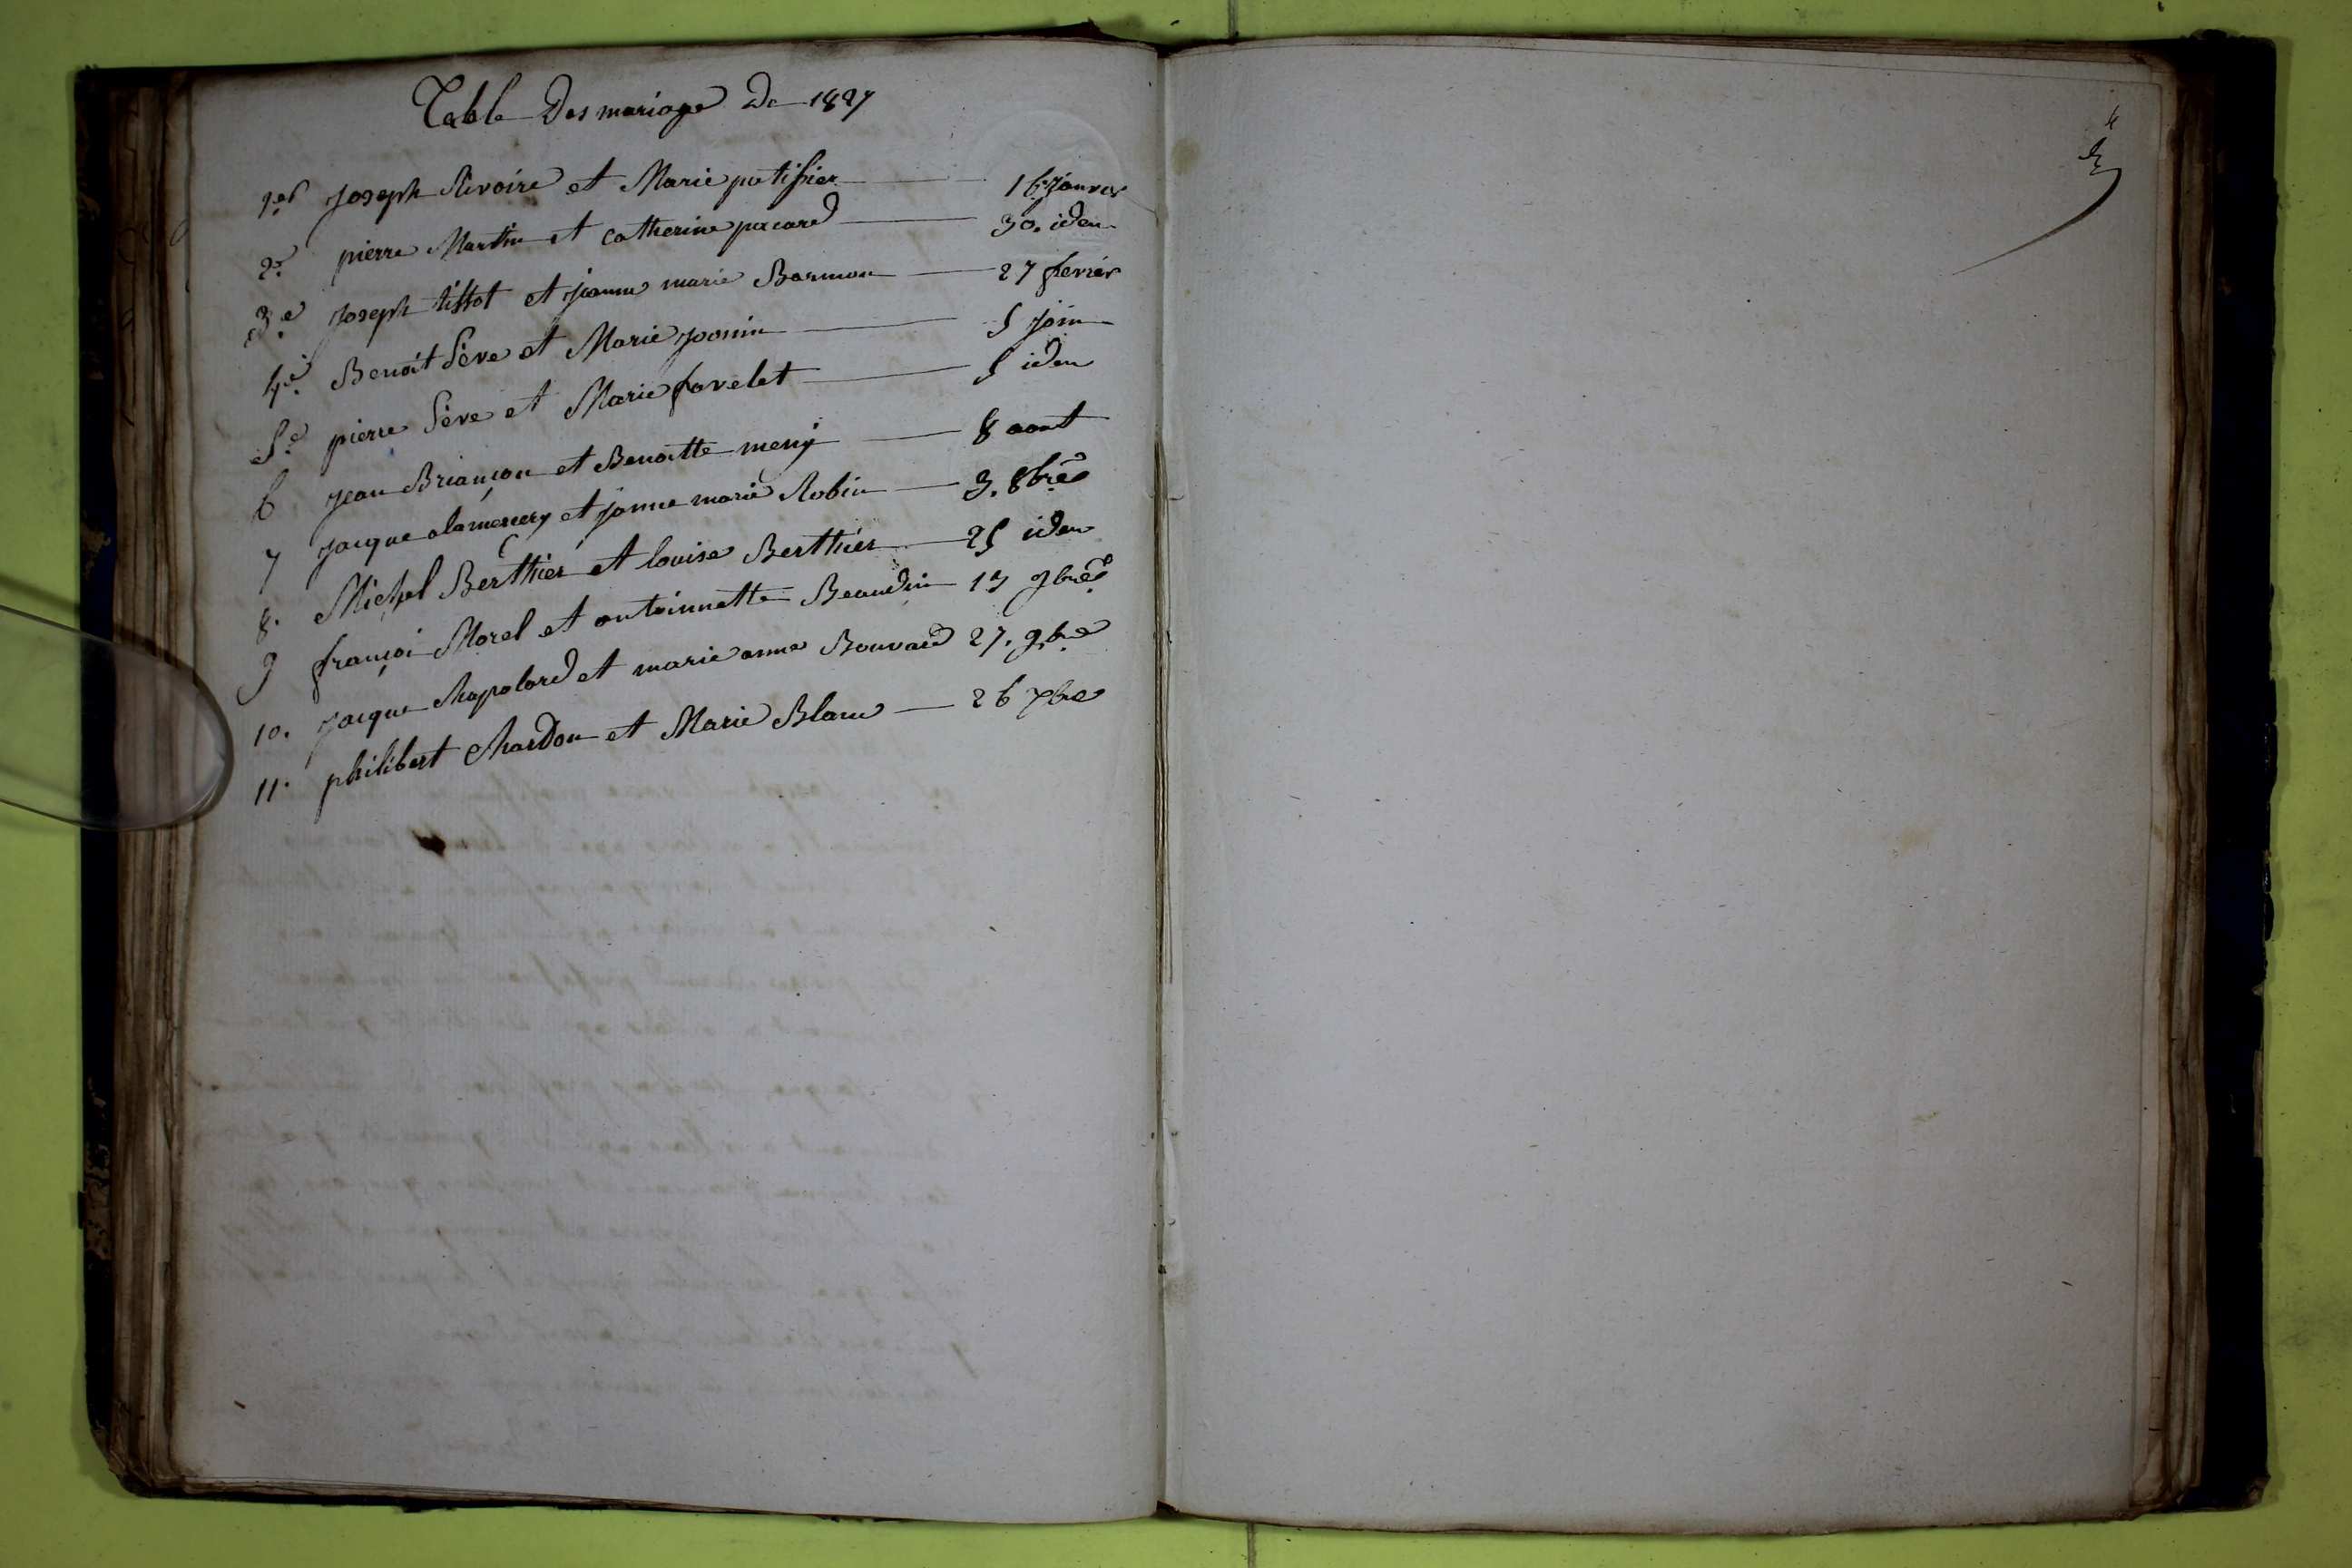 Table Des mariage De 1827
1er Joseph Rivoire et Marie patissier 16. Janver
2e pierre Martin et catherine pacard 30. idem
3e Joseph tissot et jeanne marie Bormon 27 fevrier
4e Benoit Sève et Marie Jomin 5 Join
5e pierre Sève et Marie favelet 5 idem
6 Jean Briançon et Benoitte 8 aout
7 Jacque et janne marie Robin 3. 8bre
8. Michel Berthier et louise Berthier 25 idem
9 françoi Morel et antoinnette Beaudin 13 9bre
10. Jacque Chapolard et marie anne Bouvard 27. 9bre
11. philibert Chardon et Marie Blanc 26 Xbre